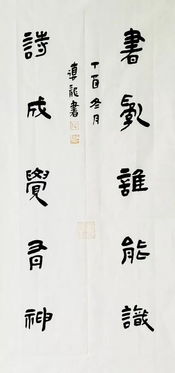 書亂誰能識
丁酉冬月
龍書
詩成覺有神